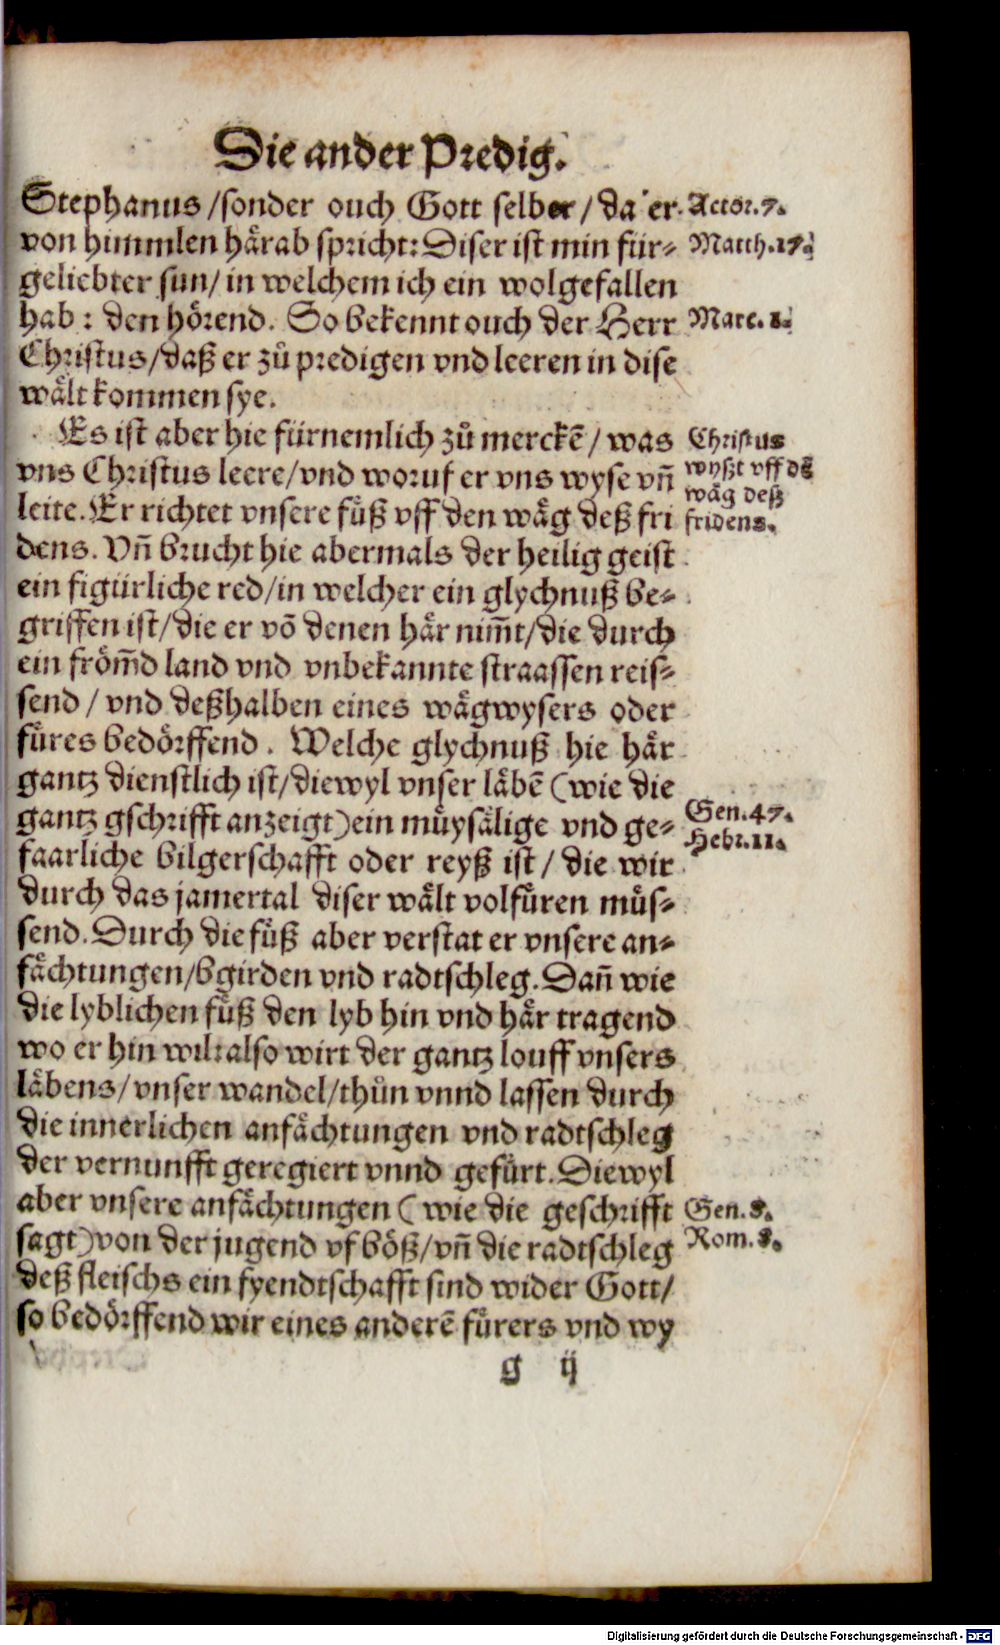 Die ander Predig.
Stephanus / sonder ouch Gott selber / da er
Actor. 7.
von himmlen haͤrab spricht: Diser ist min für⸗
Matth. 17.
geliebter sun / in welchem ich ein wolgefallen
hab: den hoͤrend. So bekennt ouch der Herr
Marc. 1.
Christus / daß er zů predigen vnd leeren in dise
waͤlt kommen sye.
Es ist aber hie fürnemlich zů merckē / was
Christus
vns Christus leere / vnd woruf er vns wyse vn̄
wyßt vff dē
waͤg deß
leite. Er richtet vnsere fuͤß vff den waͤg deß fri
fridens.
dens. Vn̄ brucht hie abermals der heilig geist
ein figürliche red / in welcher ein glychnuß be⸗
griffen ist / die er vō denen haͤr nim̄t / die durch
ein froͤm̄d land vnd vnbekannte straassen reis⸗
send / vnd deßhalben eines waͤgwysers oder
fuͤres bedoͤrffend. Welche glychnuß hie haͤr
gantz dienstlich ist / diewyl vnser laͤbē (wie die
gantz gschrifft anzeigt) ein muͤysaͤlige vnd ge⸗
Gen. 47.
Hebr. 11.
faarliche bilgerschafft oder reyß ist / die wir
durch das jamertal diser waͤlt volfuͤren muͤs⸗
send. Durch die fuͤß aber verstat er vnsere an⸗
faͤchtungen / bgirden vnd radtschleg. Dan̄ wie
die lyblichen fuͤß den lyb hin vnd haͤr tragend
wo er hin wil: also wirt der gantz louff vnsers
laͤbens / vnser wandel / thůn vnnd lassen durch
die innerlichen anfaͤchtungen vnd radtschleg
der vernunfft geregiert vnnd gefuͤrt. Diewyl
aber vnsere anfaͤchtungen (wie die geschrifft
Gen. 8.
sagt) von der jugend vf boͤß / vn̄ die radtschleg
Rom. 8.
deß fleischs ein fyendtschafft sind wider Gott /
so bedoͤrffend wir eines anderē fuͤrers vnd wy
g ij
Digitalisierung gefördert durch die Deutsche Forschungsgemeinschaft - DFG